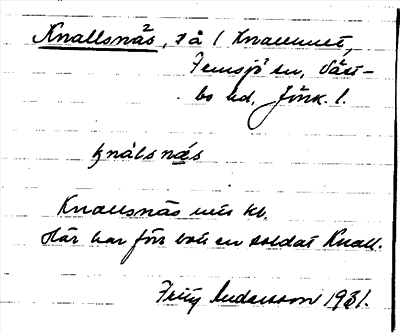 Knallsnäs, så i Knallhult,
Femsjö sn, Väst-
bo hd, Jönk. l.
knálsnǽs
Knallsnäs
Här har förr bott en soldat Knall.
Fritz Andersson 1931.